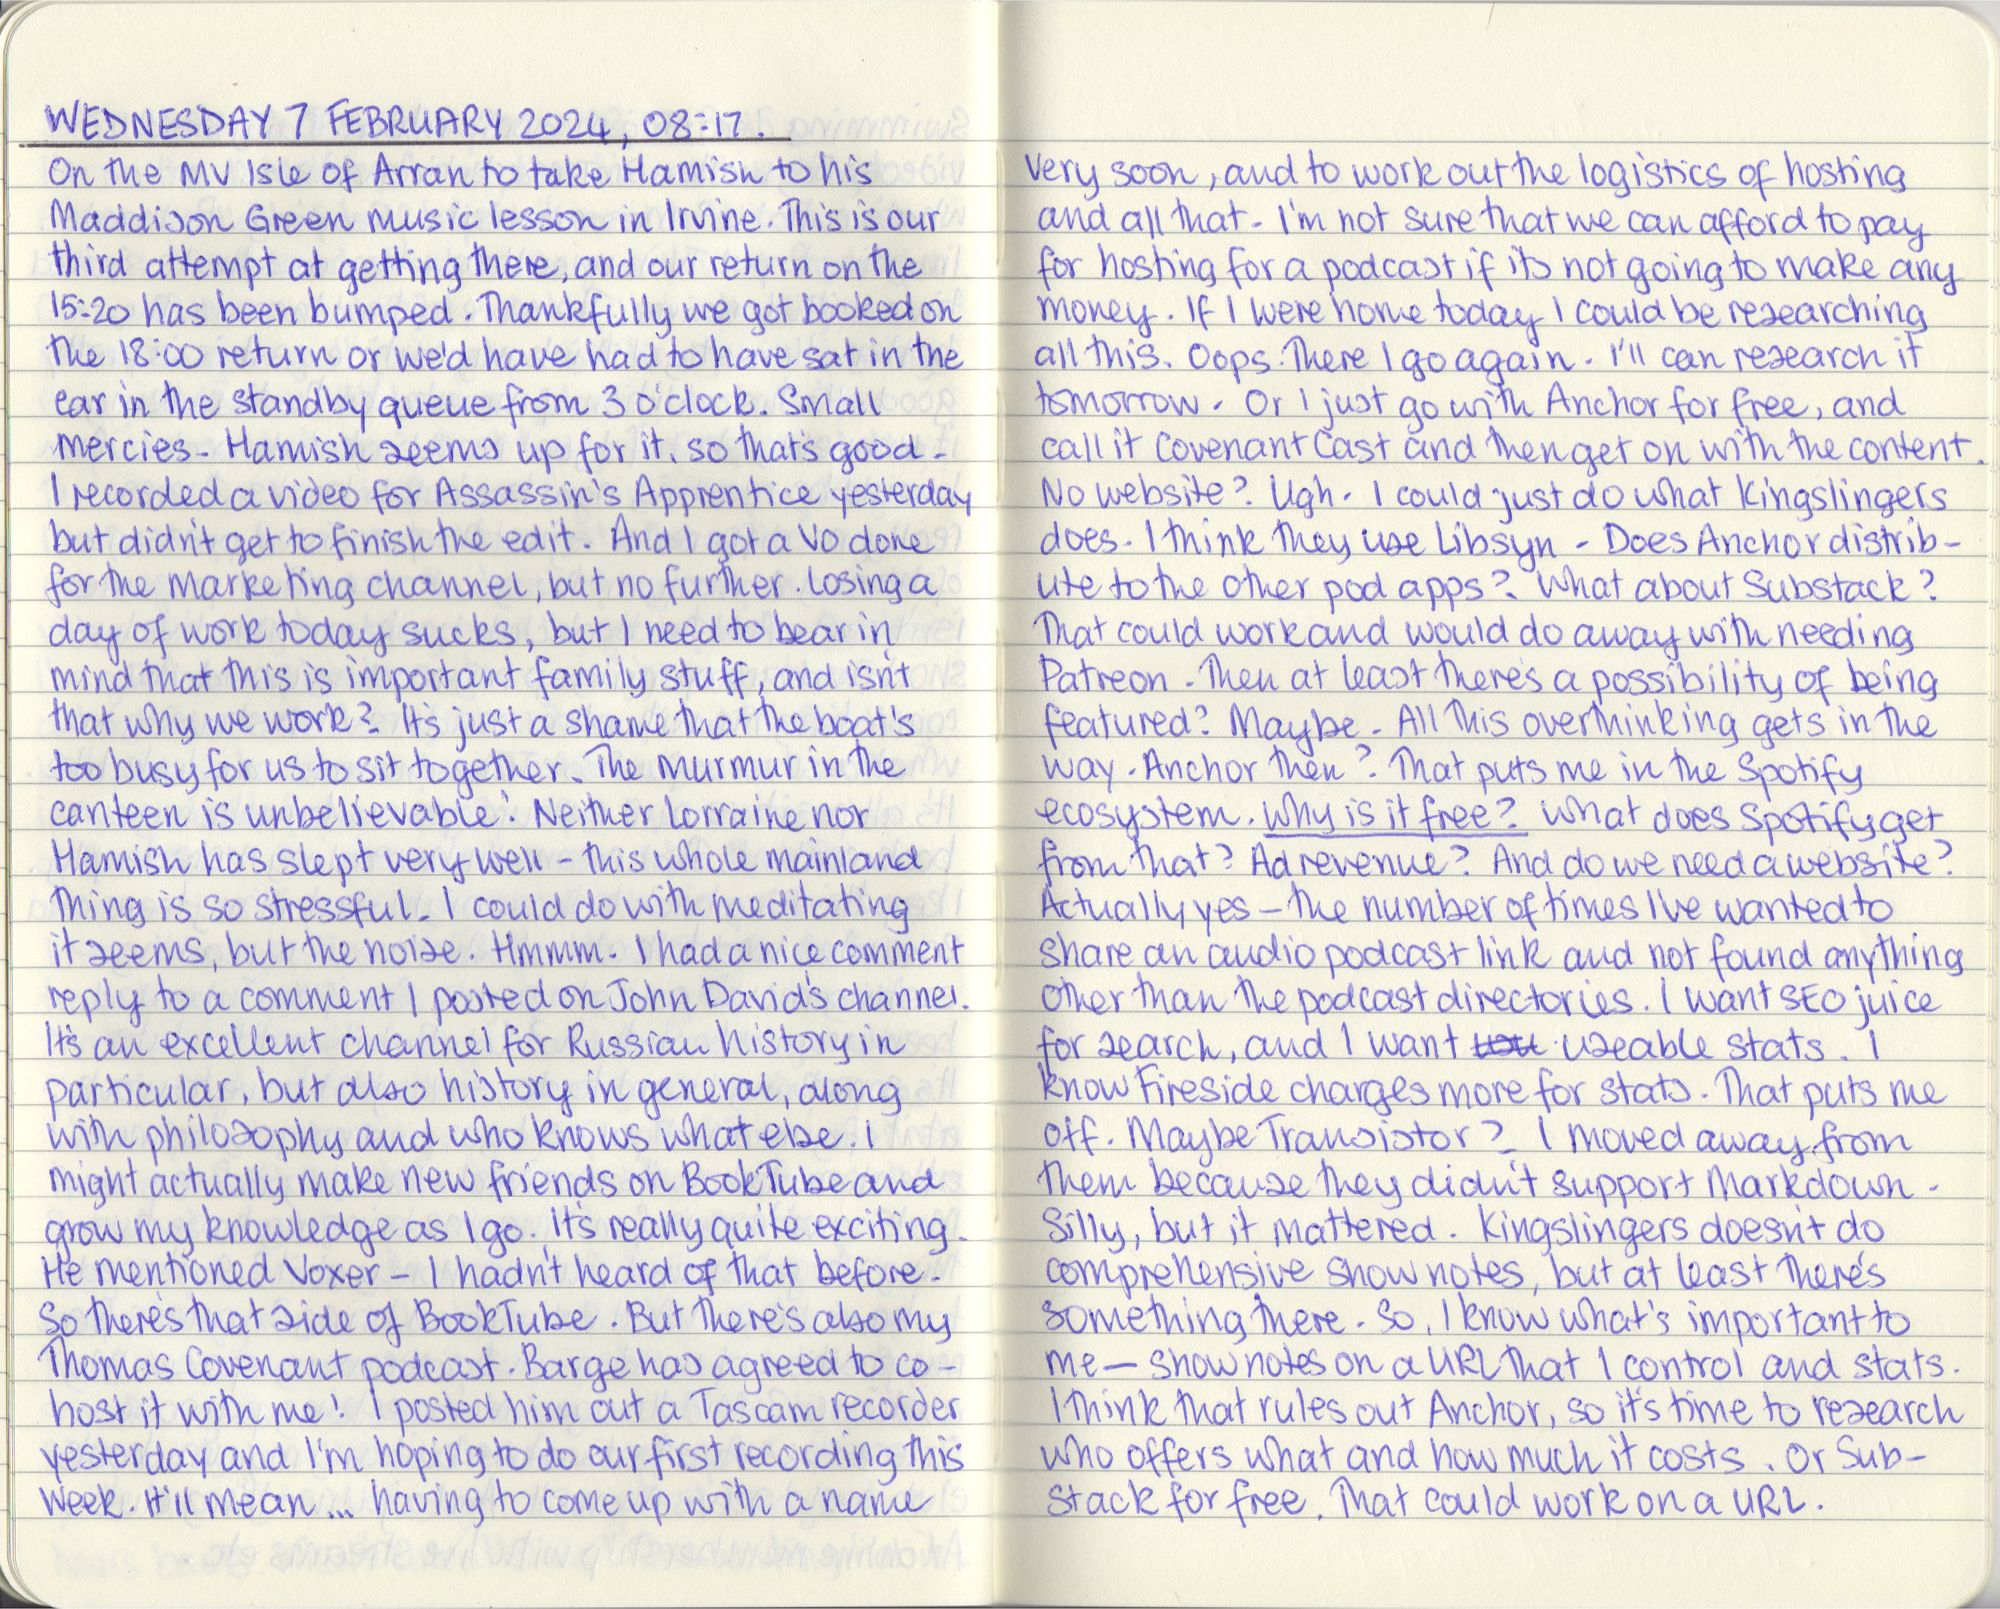 WEDNESDAY 7 FEBRUARY 2024, 08:17.
On the MV Isle of Arran to take Hamish to his
Maddison Green music lesson in Irvine. This is our
third attempt at getting there, and our return on the
15:20 has been bumped. Thankfully we got booked on
the 18:00 return or we'd have had to have sat in the
car in the standby queue from 3 o'clock. Small
mercies. Hamish seems up for it, so that's good.
I recorded a video for Assassin's Apprentice yesterday
but didn't get to finish the edit. And I got a VO done
for the marketing channel, but no further. Losing a
day of work today sucks, but I need to bear in
mind that this is important family stuff, and isn't
that why we work? It's just a shame that the boat's
too busy for us to sit together. The murmur in the
canteen is unbelievable! Neither Lorraine nor
Hamish has slept very well – this whole mainland
thing is so stressful. I could do with meditating
it seems, but the noise. Hmmm. I had a nice comment
reply to a comment I posted on John David's channel.
It's an excellent channel for Russian history in
particular, but also history in general, along
with philosophy and who knows what else. I
might actually make new friends on BookTube and
grow my knowledge as I go. It's really quite exciting.
He mentioned Voxer – I hadn't heard of that before.
So there's that side of BookTube. But there's also my
Thomas Covenant podcast. Barge has agreed to co-
host it with me! I posted him out a Tascam recorder
yesterday and I'm hoping to do our first recording this
week. It'll mean ... having to come up with a name
very soon, and to work out the logistics of hosting
and all that. I'm not sure that we can afford to pay
for hosting for a podcast if it's not going to make any
money. If I were home today I could be researching
all this. Oops. There I go again. I'll can research it
tomorrow. Or I just go with Anchor for free, and
call it Covenant Cast and then get on with the content.
No website? Ugh. I could just do what Kingslingers
does. I think they use Libsyn - Does Anchor distrib-
ute to the other pod apps? What about Substack?
That could work and would do away with needing
Patreon. Then at least there's a possibility of being
featured? Maybe. All this overthinking gets in the
way. Anchor then? That puts me in the Spotify
ecosystem. Why is it free? What does Spotify get
from that? Ad revenue? And do we need a website?
Actually yes – the number of times I've wanted to
share an audio podcast link and not found anything
other than the podcast directories. I want SEO juice
for search, and I want useable stats. I
know Fireside charges more for stats. That puts me
off. Maybe Transistor? I moved away from
them because they didn't support Markdown.
Silly, but it mattered. Kingslingers doesn't do
comprehensive show notes, but at least there's
something there. So, I know what's important to
me – show notes on a URL that I control and stats.
I think that rules out Anchor, so it's time to research
who offers what and how much it costs. Or Sub-
stack for free. That could work on a URL.